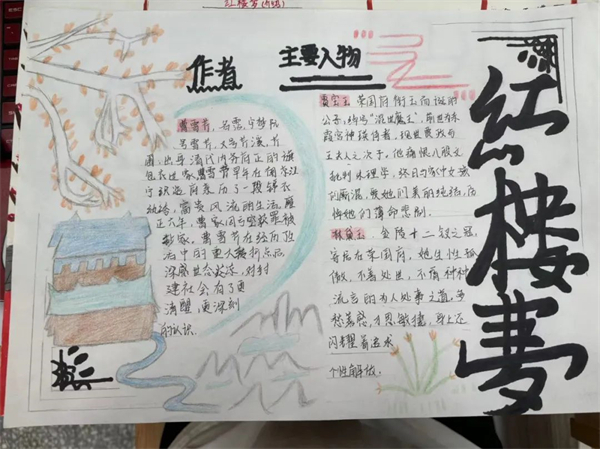 红楼梦(内容)
作者
曹雪芹，名霑，字梦阮
号雪芹，又号芹溪、芹
圃，出身清代内务府正白旗
包衣世家，曹雪芹早年在南京江
宁织造府亲历了一段锦衣
纨绔，富贵风流的生活，雍
正六年，曹家因亏空获罪被
抄家，曹雪芹在经历
活中的重大转折点后
深感世态炎凉，对封
建社会有了更
清醒、更深刻
的认识
主要人物
贾宝玉 荣国府衔玉而诞的
公子，绰号“混世魔王”，前世为赤
霞宫神瑛侍者，现世贾政与
王夫人之次子。他痛恨八股文
批判
的厮混，爱她们美丽纯洁，
悼她们薄命悲剧。
林黛玉 金陵十二钗之冠，
寄居在荣国府，她生性孤
傲，不善处世，不屑种种
流言的为人处事之道，多
愁善感，才思敏捷，身上还
闪耀着追求
个性解放。
红楼夢